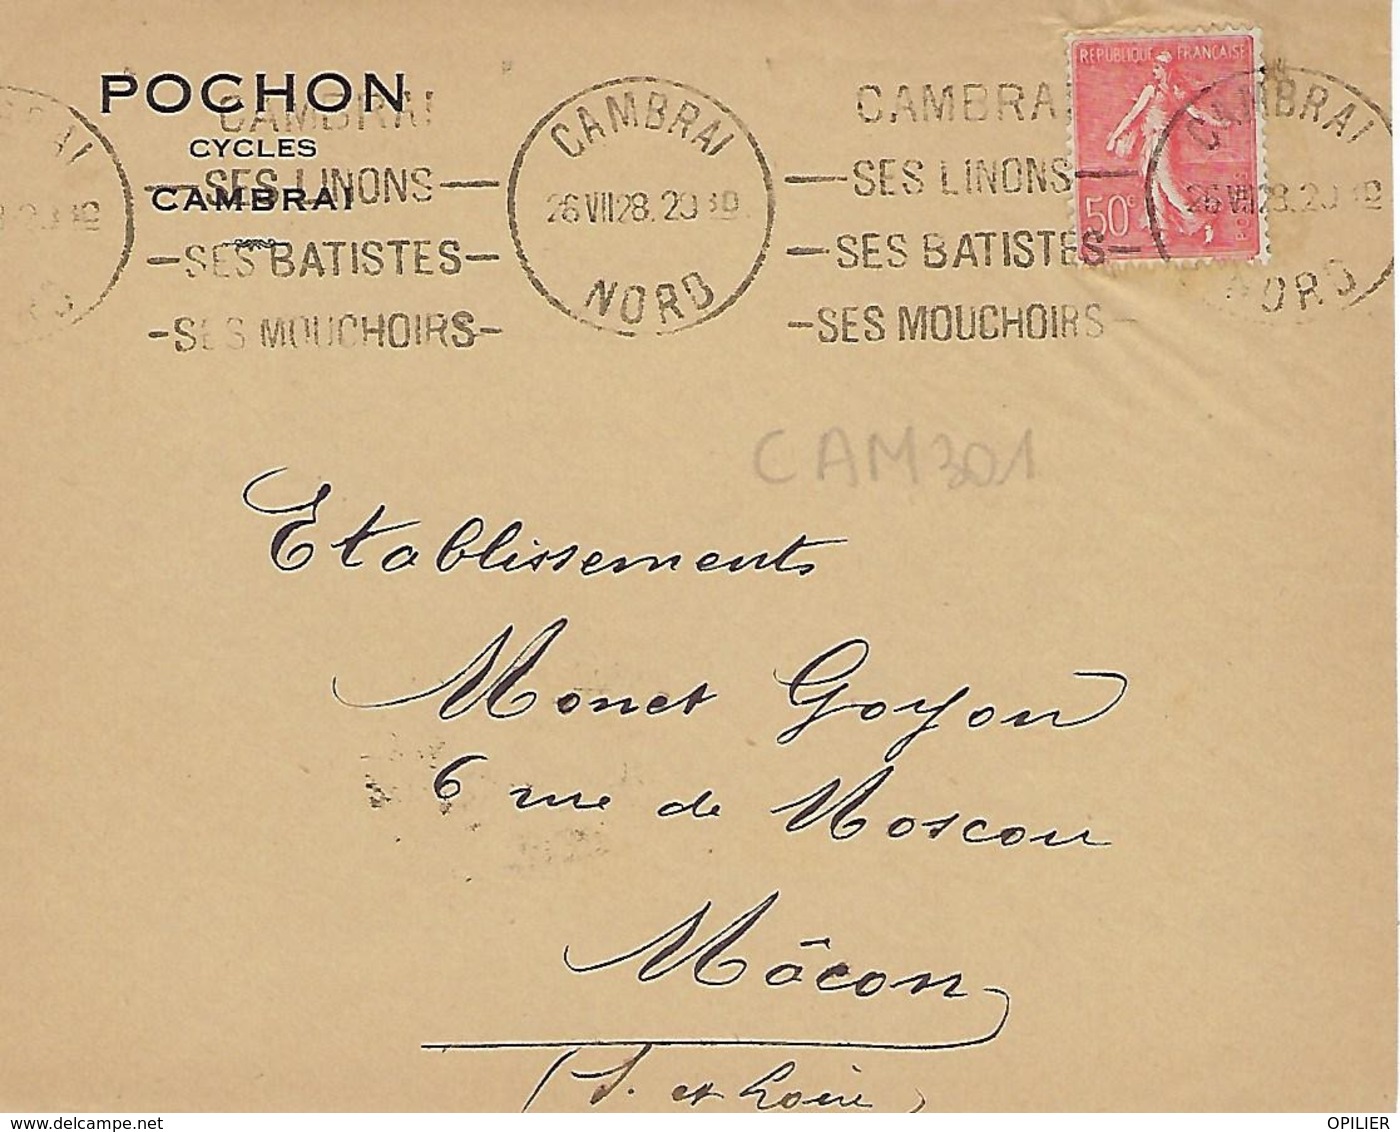 POCHON
CYCLES
CAMBRAI
CAMBRAI
SES LINONS
SES BATISTES
SES MOUCHOIRS
CAMBRAI
26 VII 28. 20 30
NORD
CAMBRAI
SES LINONS
SES BATISTES
SES MOUCHOIRS
REPUBLIQUE FRANÇAISE
50c
CAMBRAI
26 VII 28. 20
NORD
CAM301
Etablissements
Monet Goyon
6 rue de Moscou
Mâcon
(S. et Loire)
OPILIER